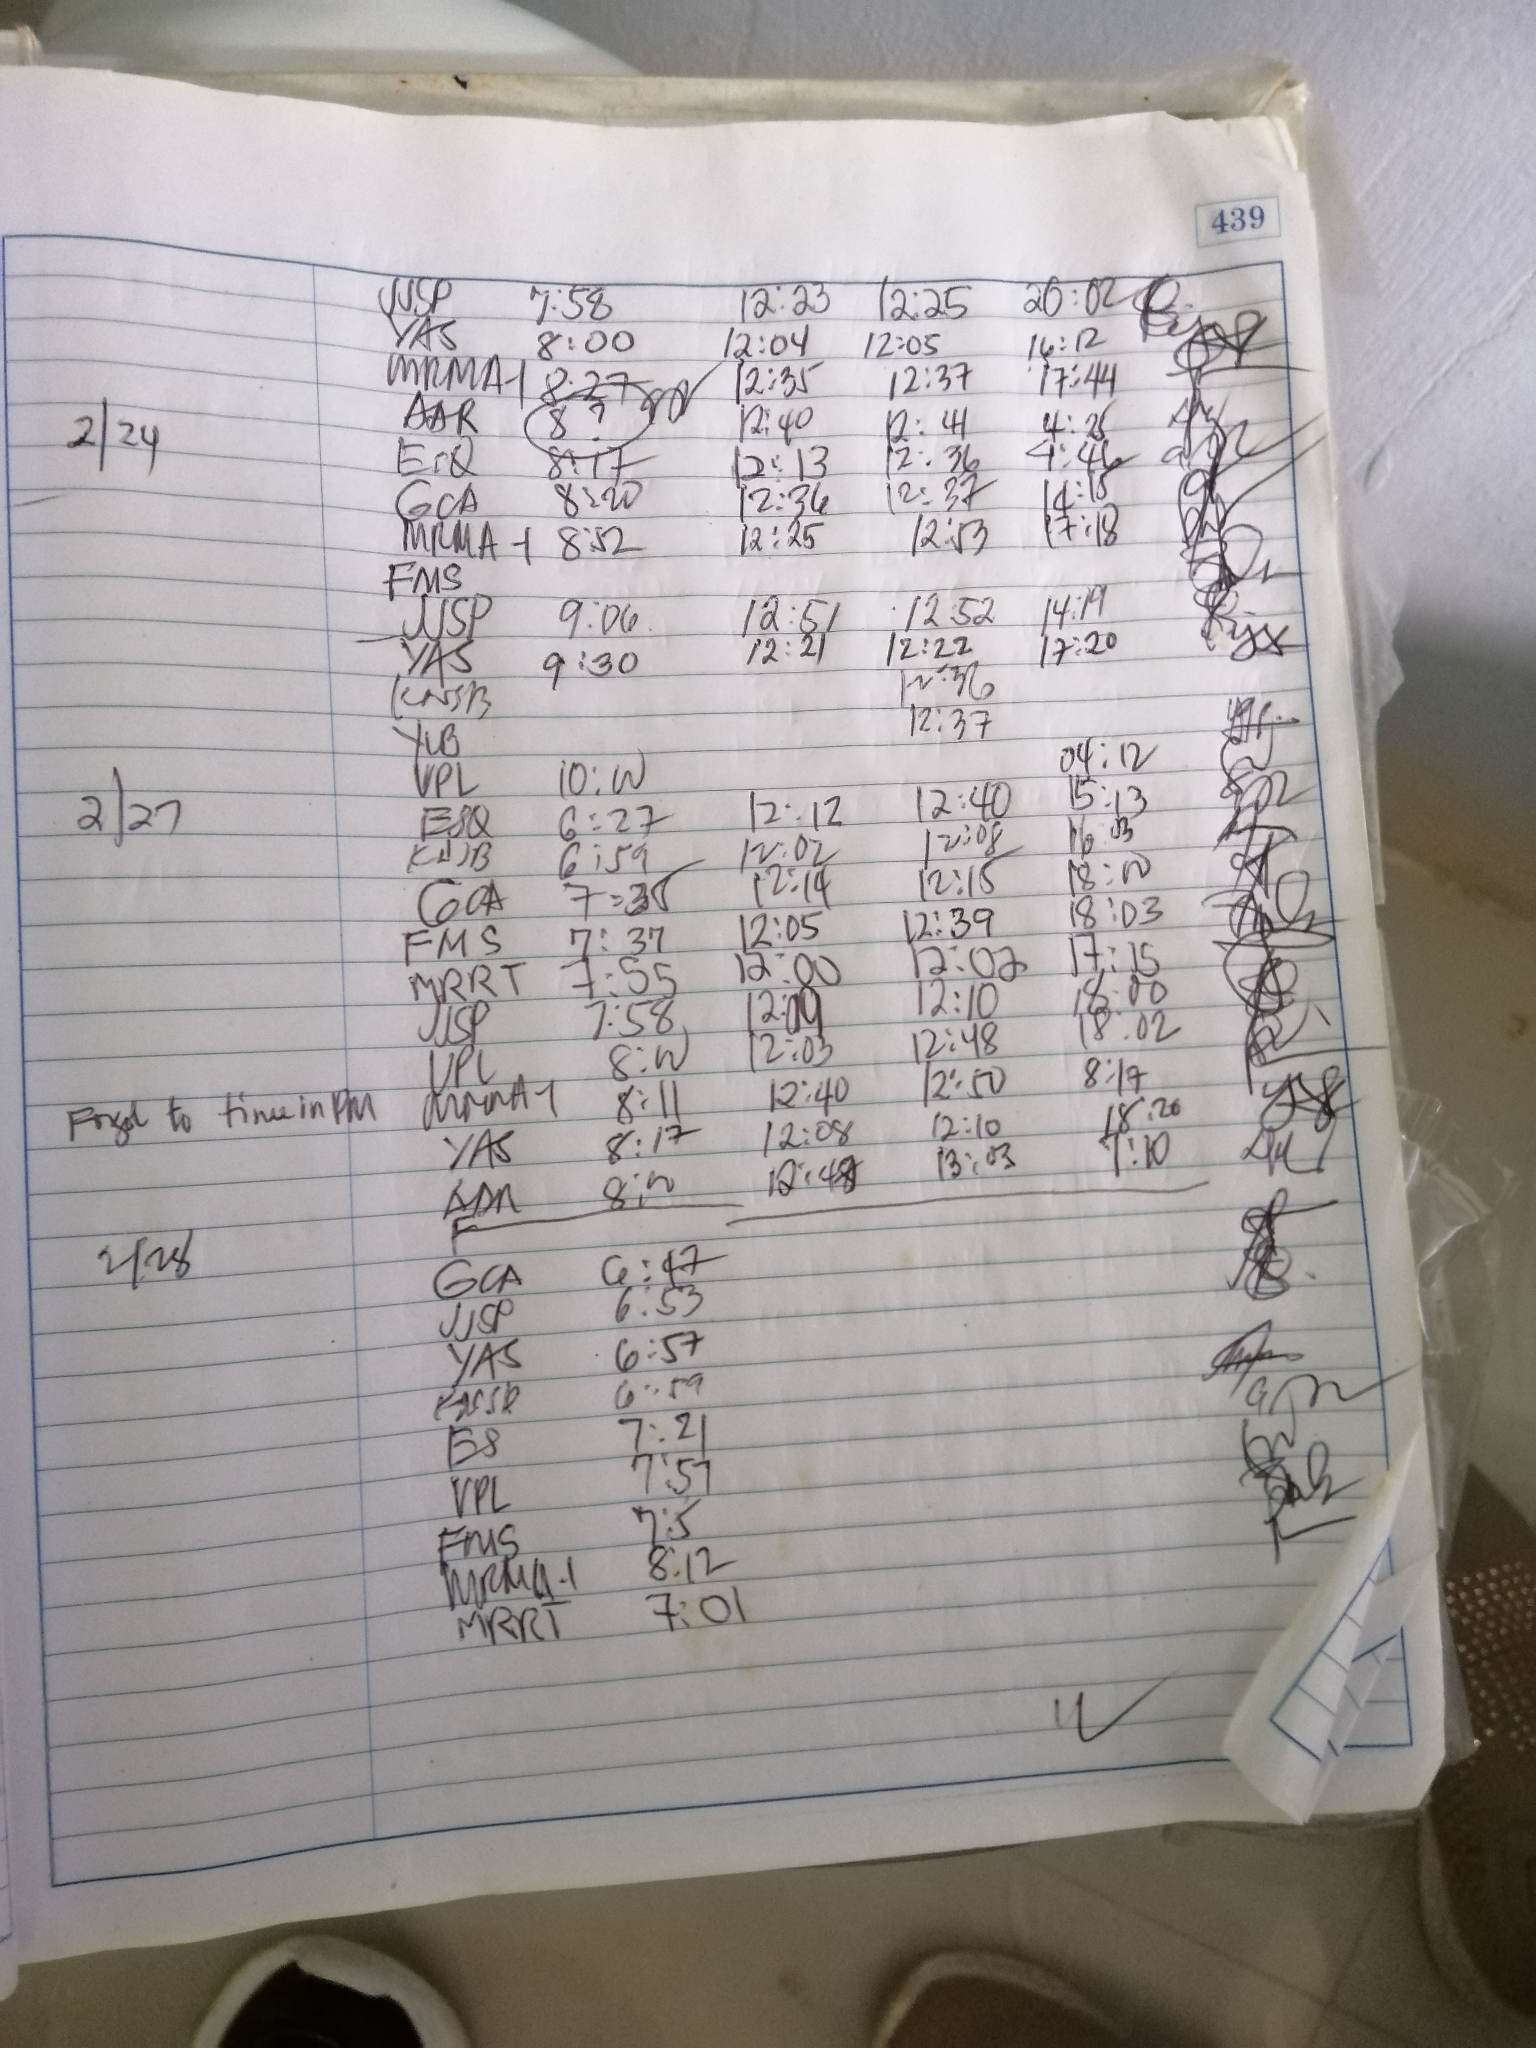 439
JJSP 7:58 12:23 12:25 20:02
YAS 8:00 12:04 12:05 16:12
MRMA-1 8:27 12:35 12:37 17:44
2/24 AAR 8? 12:40 12:41 4:25
ESQ 8:17 12:13 12:36 4:46
GCA 8:20 12:36 12:37 14:15
MRMA-1 8:52 12:25 12:53 17:18
FMS
JJSP 9:06 12:51 12:52 14:19
YAS 9:30 12:21 12:22 17:20
KNSB 12:36
YLB 12:37
VPL 10:00 04:12
2/27 ESQ 6:27 12:12 12:40 15:13
6:59 12:02 12:08 16:03
GCA 7:35 12:14 12:15 18:00
FMS 7:37 12:05 12:39 18:03
MRRT 7:55 12:00 12:02 17:15
JJSP 7:58 12:09 12:10 18:00
VPL 8:00 12:03 12:48 18:02
Forgot to time in PM MRMA-1 8:11 12:40 12:50 8:17
YAS 8:17 12:08 12:10 18:20
8:00 12:48 13:03 7:10
F
2/28 GCA 6:47
JJSP 6:53
YAS 6:57
6:59
ES 7:21
VPL 7:57
FMS 7:5
MRMA-1 8:12
MRRT 7:01